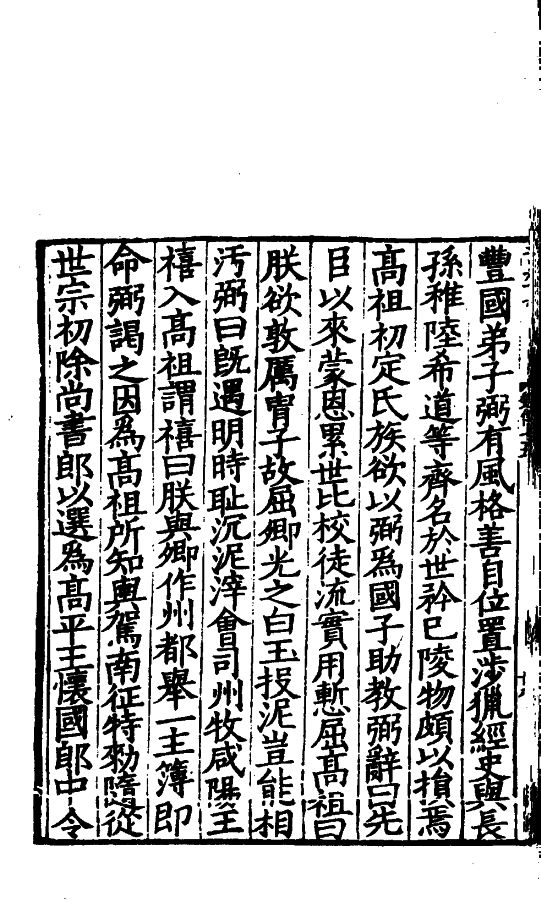 豐國弟子弼有風格善自位置涉獵經史與長
孫稚陸希道等齊名於世矜己陵物頗以損焉
髙祖初定氏族欲以弼爲國子助教弼辭曰先
臣以來蒙恩累世比校徒流實用慙屈髙祖曰
朕欲敦厲胄子故屈卿光之白玉投泥豈能相
汚弼曰旣遇明時耻沉泥滓會司州牧咸陽王
禧入髙祖謂禧曰朕與卿作州都舉一主簿即
命弼謁之因爲髙祖所知輿駕南征特勑隨從
世宗初除尚書郎以選爲髙平王懷國郎中令